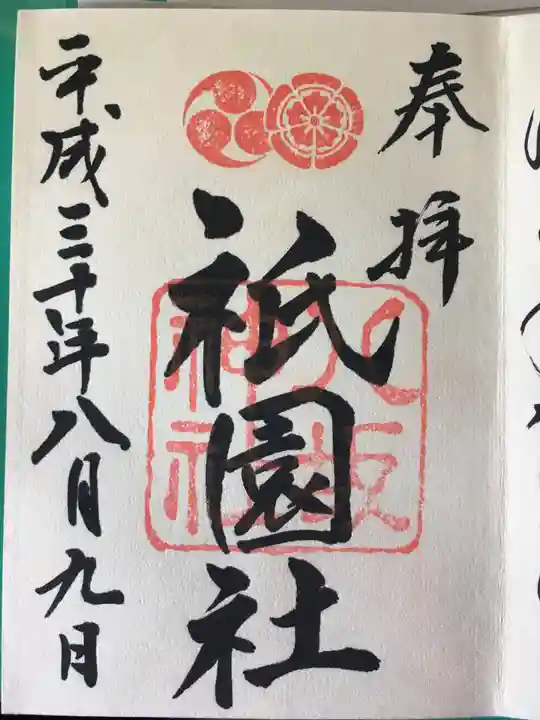 奉拝
八坂神社
祇園社
平成三十年八月九日